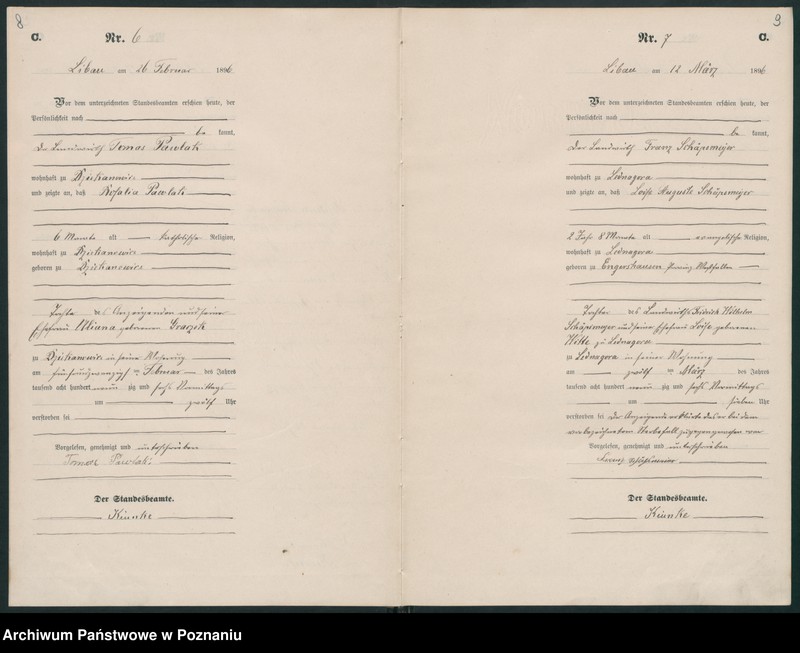 8
C. Nr. 6
Libau am 26 Februar 1896
Vor dem unterzeichneten Standesbeamten erschien heute, der
Persönlichkeit nach
be kannt,
Der Landwirth Tomas Pawlak
wohnhaft zu
und zeigte an, daß Rosalia Pawlak
6 Monate alt katholische Religion,
wohnhaft zu
geboren zu
Tochter des Anzeigenden und seiner
Ehefrau geborenen
zu in seine Wohnung
am fünfundzwanzigst en Februar des Jahres
tausend acht hundert neun zig und sechs Vormittags
um zwölf Uhr
verstorben sei
Vorgelesen, genehmigt und unterschrieben
Tomas Pawlak
Der Standesbeamte.
Kiunke
9
Nr. 7 C.
Libau am 12 März 1896
Vor dem unterzeichneten Standesbeamten erschien heute, der
Persönlichkeit nach
be kannt,
Der Landwirth Franz Schäpsmeijer
wohnhaft zu Lednagora
und zeigte an, daß Loise Auguste Schäpsmeijer
2 Jahr 8 Monate alt evangelische Religion,
wohnhaft zu Lednagora
geboren zu Engershausen Provinz Westfallen
Tochter des Landwirths Fridrich Wilhelm
Schäpsmeijer und seine Ehefrau Loise geborenen
Witte zu Lednagora
zu Lednagora in seiner Wohnung
am zwölf en März des Jahres
tausend acht hundert neun zig und sechs Vormittags
um sieben Uhr
verstorben sei Der Anzeigende erklärte das er bei dem
Sterbefall zugegen gewesen
Vorgelesen, genehmigt und unterschrieben
Der Standesbeamte.
Kiunke
Archiwum Państwowe w Poznaniu